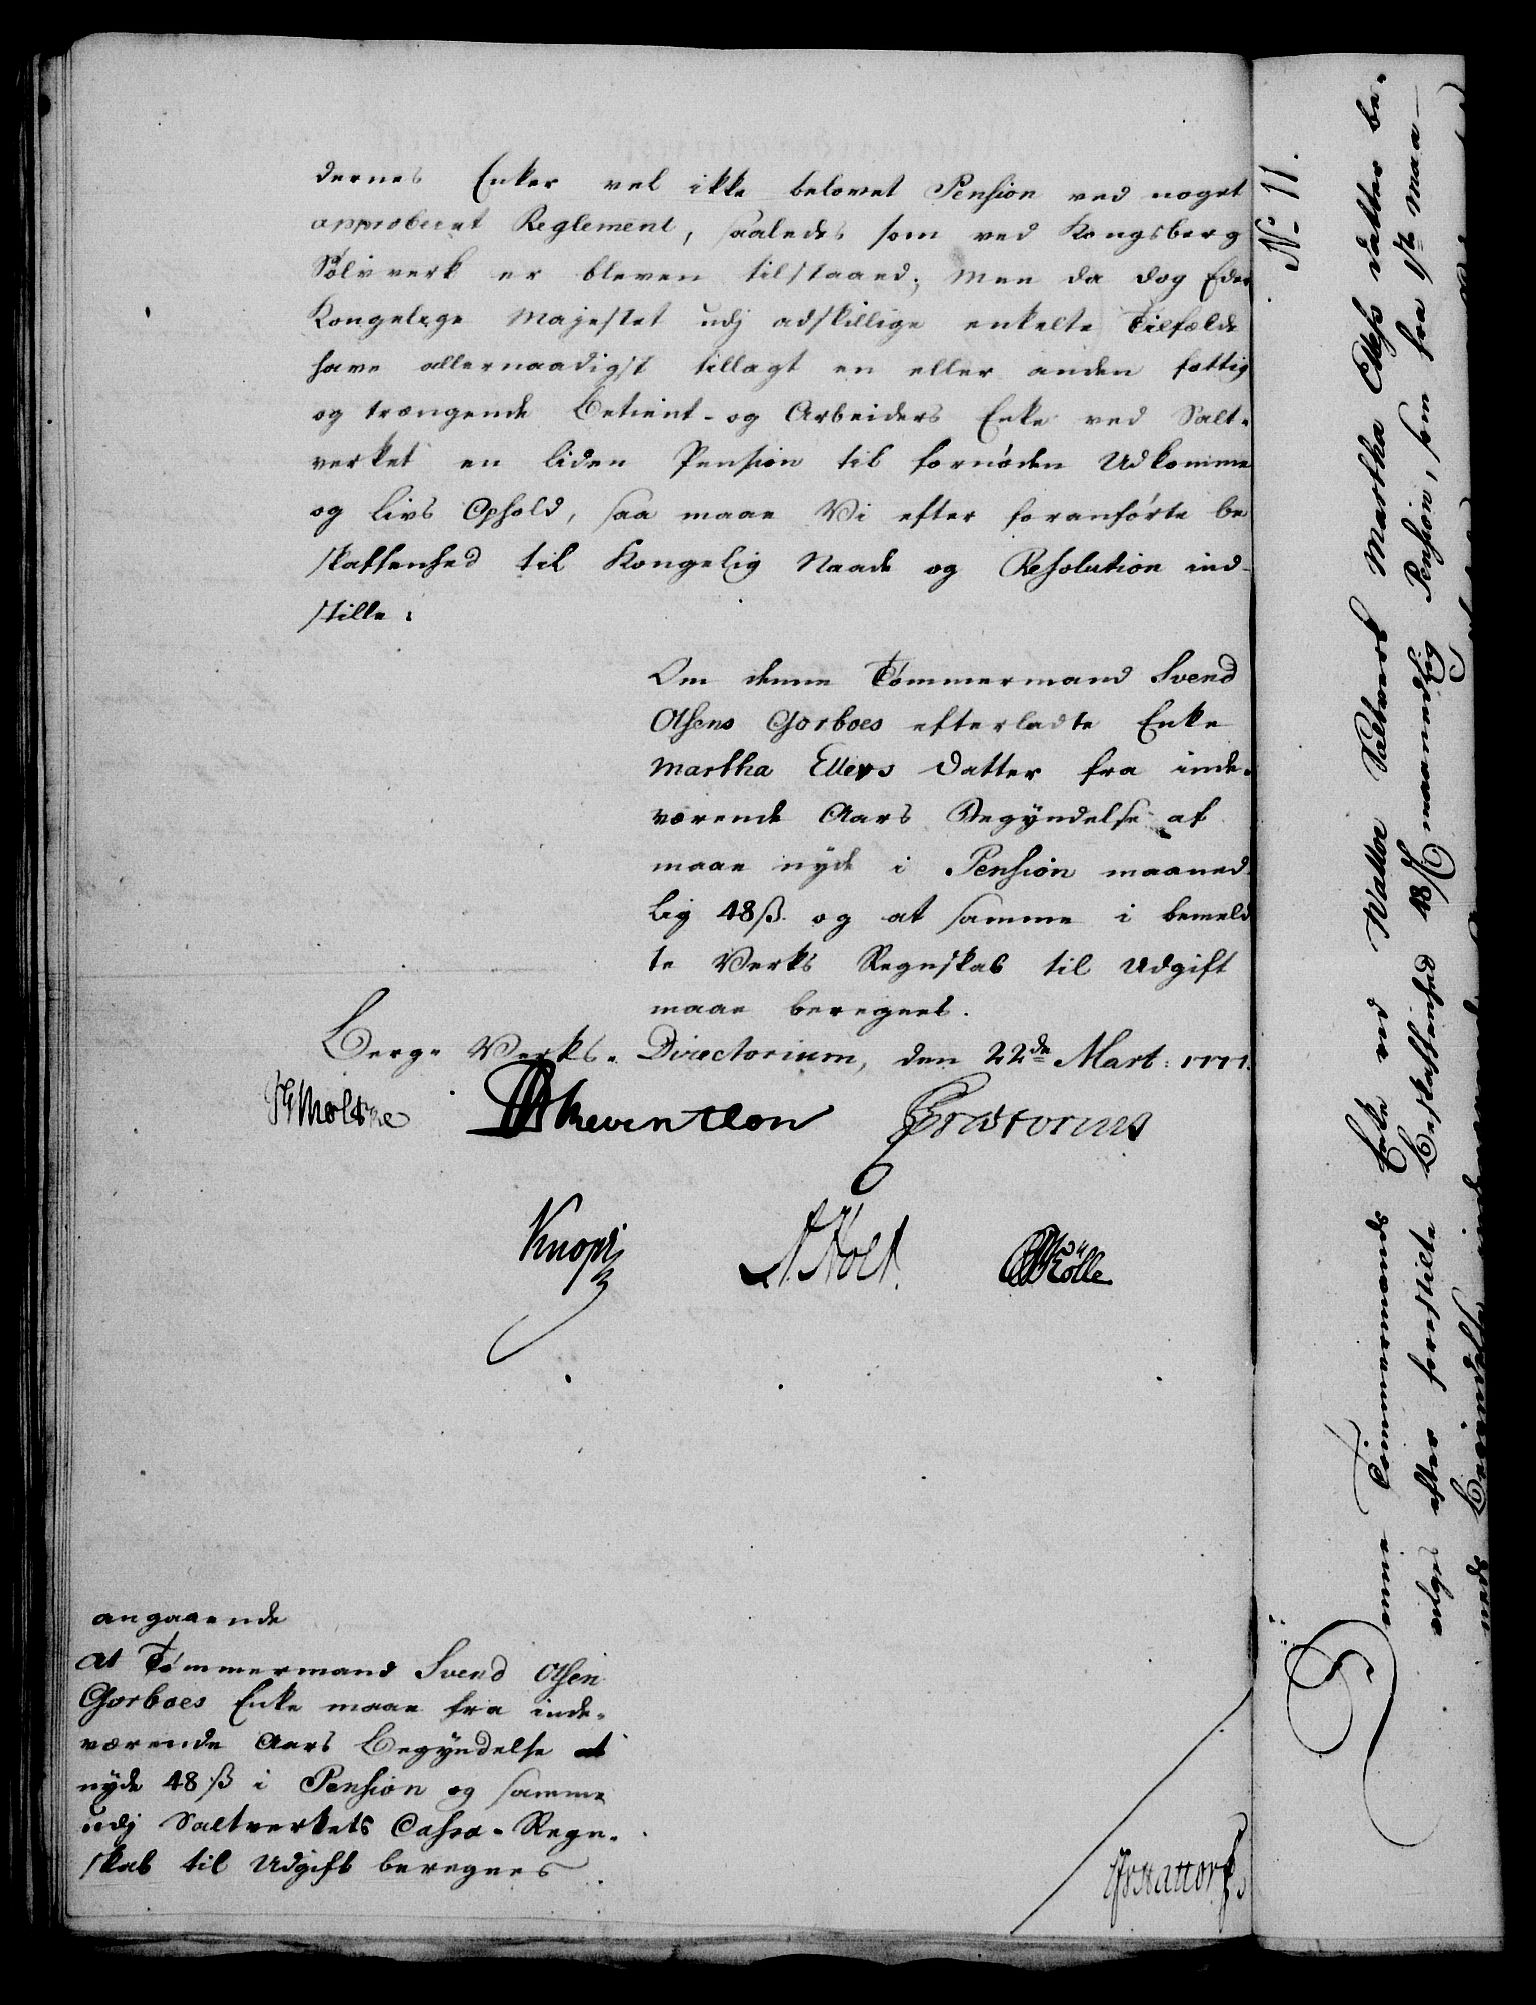 dernes Enker vel ikke belovet Pension ved noget
approberet Reglement, saaledes som ved Kongsberg
Sølvverk er bleven tilstaaed; men da dog Eders
Kongelige Majestet udj adskillige enkelte Tilfælde
have allernaadigst tillagt en eller anden fattig
og trængende Betient- og Arbeiders Enke ved Salt-
verket en liden Pension til fornøden Udkomme
og Livs Ophold, saa maae Vi efter foranførte be
skaffenhed til Kongelig Naade og Resolution ind-
stille:
Om denne Tømmermand Svend
Olsens Gorboes efterladte Enke
Martha Ellevs Datter fra inde-
værende Aars Begyndelse af
maae nyde i Pension maaned-
lig 48 ß. og at samme i bemeld
te Verks Regnskab til Udgift
maae beregnes.
Berg- Verks- Directorium, den 22de Mart: 1777.
Moltke Reventlou Prætorius
Knopf Holt Rölle
angaaende
at Tømmermand Svend Olsen
Gorboes Enke maae fra inde-
værende Aars Begyndelse at
nyde 48 ß i Pension og samme
udj Saltverkets Cassa-Regn-
skab til Udgift beregnes
No 11.
Denne Tømmermands Enke ved Walloe Saltverk Martha Datter be-
vilges efter forestilte Beskaffenhed 48 ß maanedlig Pension, som fra 1ste Maa-
neds Begyndelse